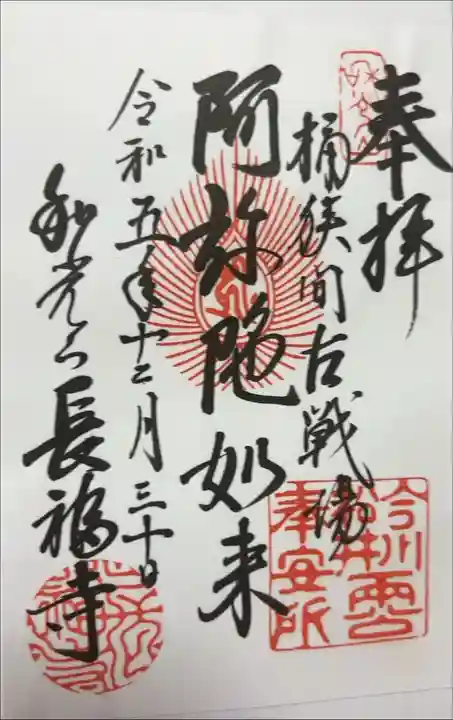 奉拝
桶狭間古戦場
阿弥陀如来
令和五年十二月三十日
和光山長福寺
今川
奉安所